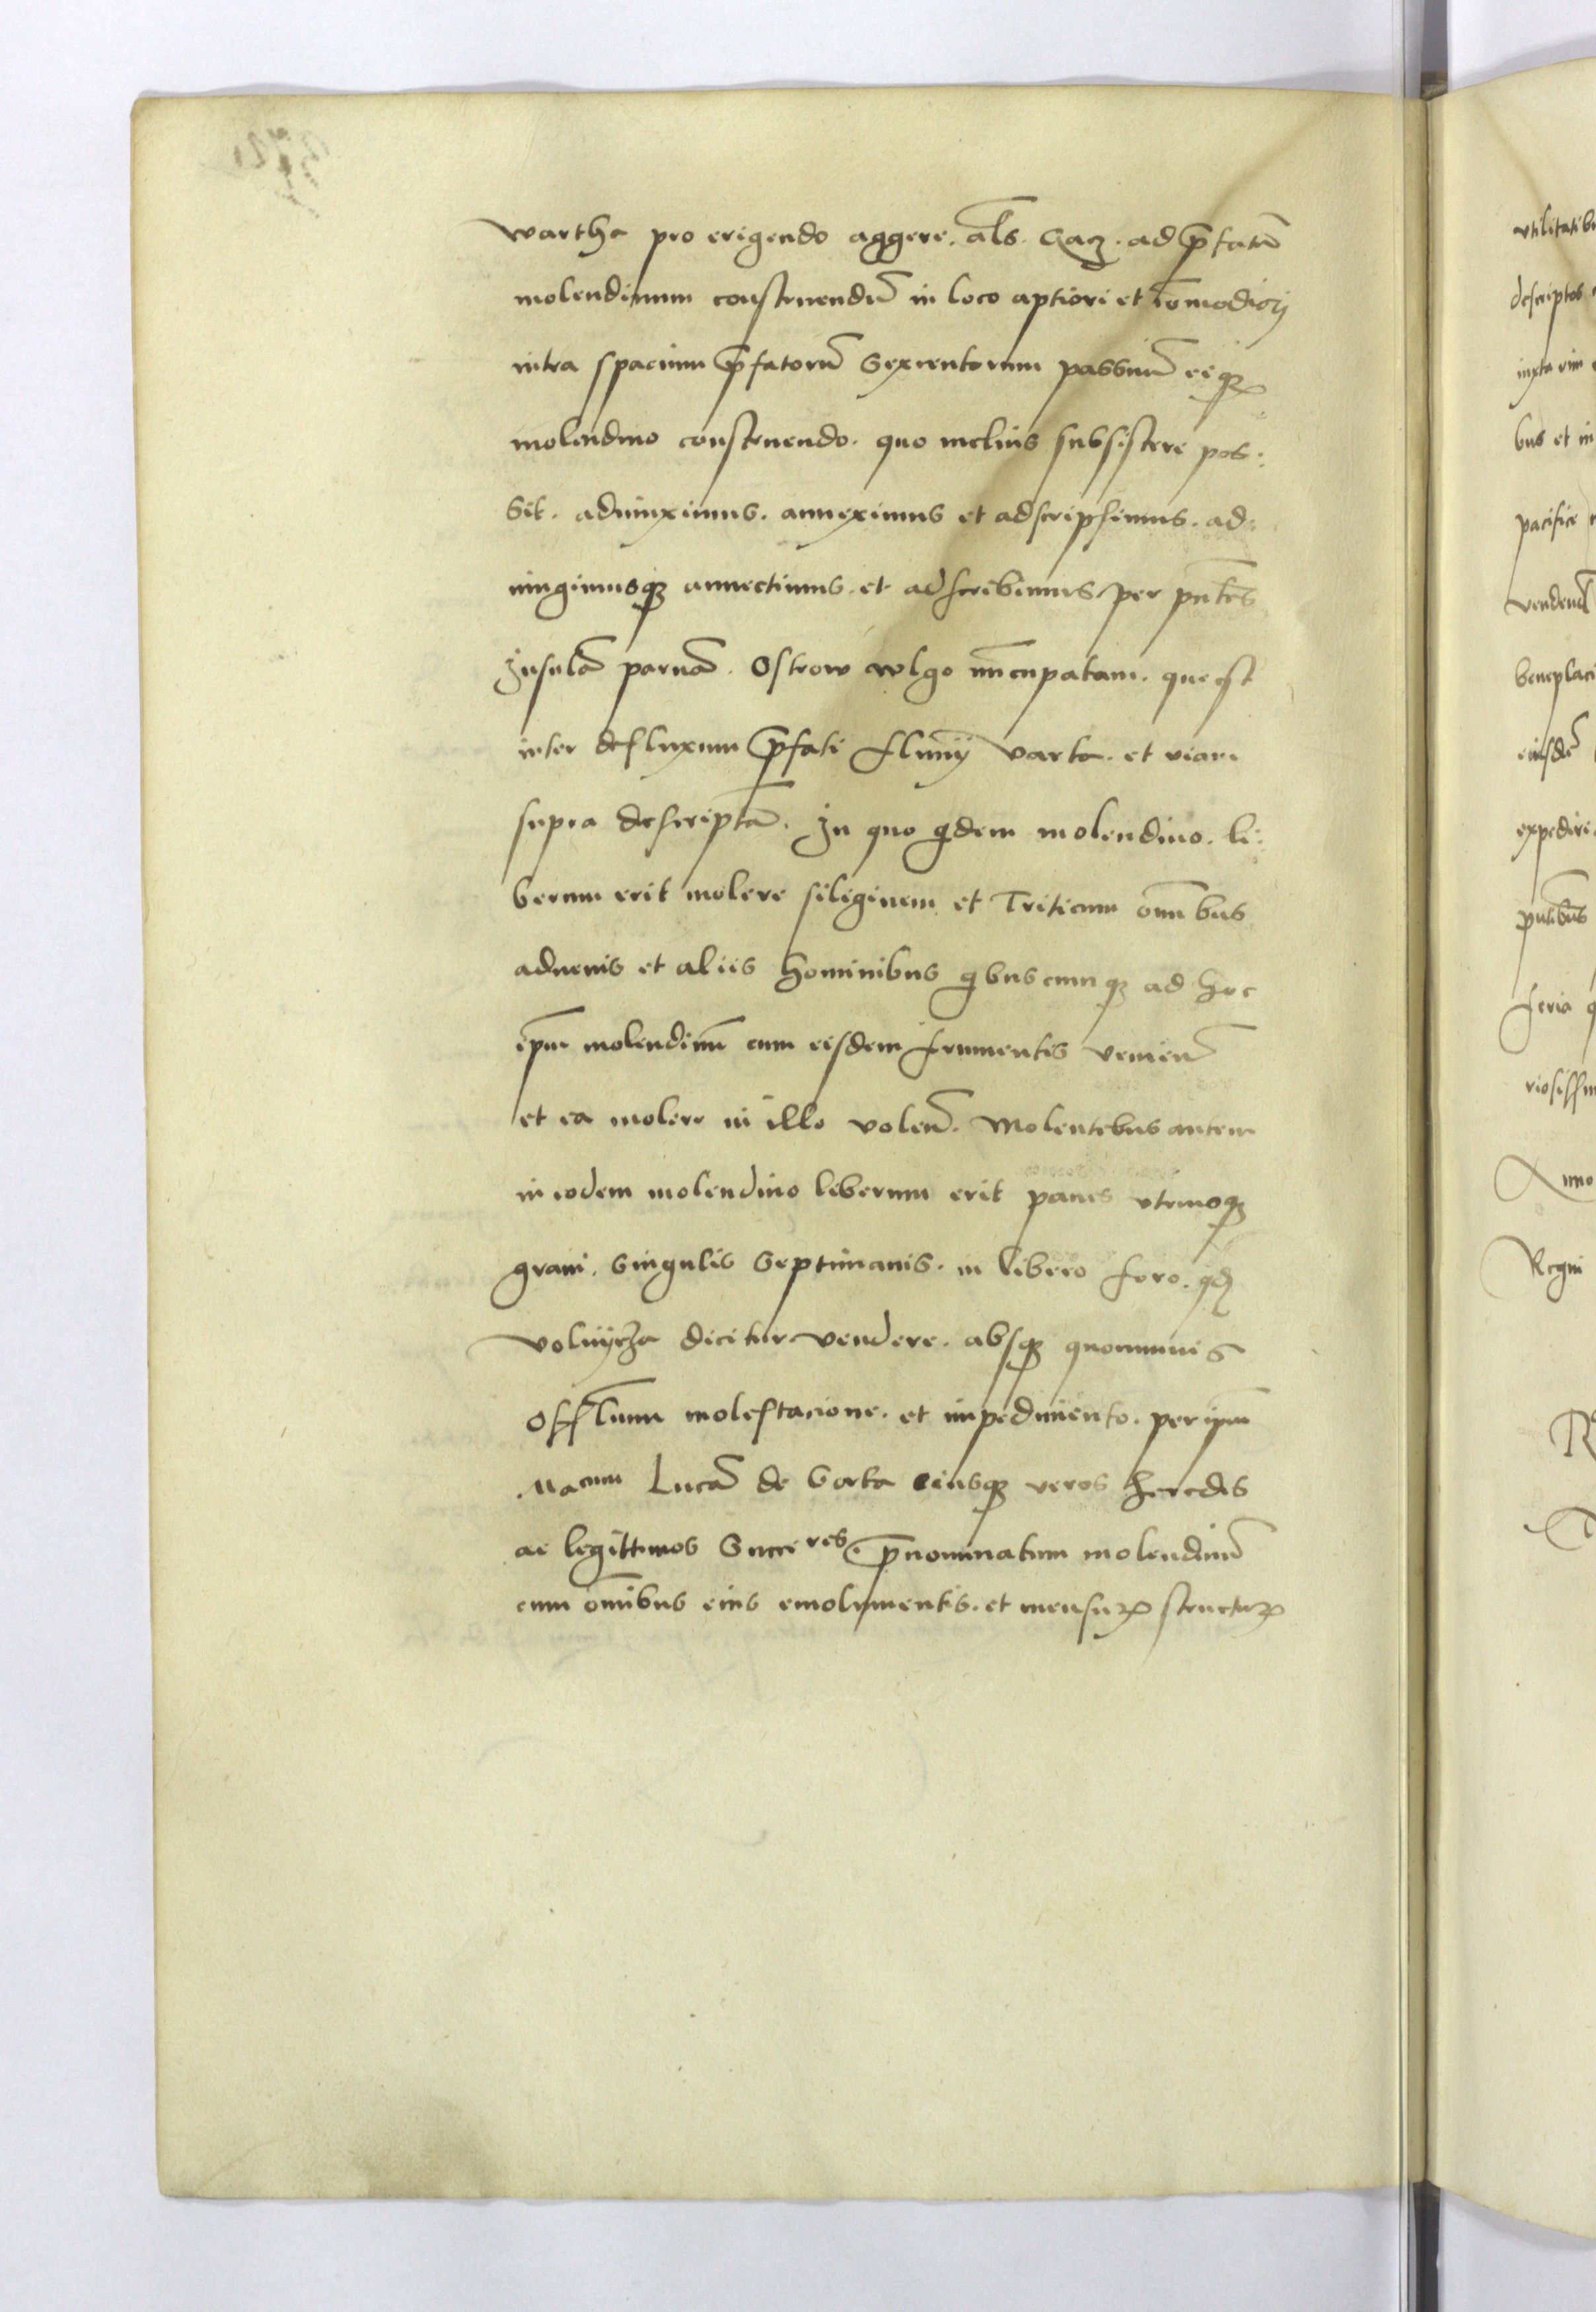 wartha pro erigendo aggere. als. Gaz. ad p̄fatū
molendinum construendū in loco aptiori et cōmodiori
intra spacium p̄fatorū sexcentorum passuum eiq3
molendino construendo. quo melius subsistere pos:
sit. adiunximus. anneximus et adscripsimus. ad:
iungimusq3 annectimus. et adscribimus per pn̄tes
Insulā paruā. Ostrow wlgo nūcupatam. que est
inter defluxum p̄fati fluuij varta. et viam
supra descriptā. In quo qdem molendino. li:
berum erit molere siliginem et Triticum om̄ibus
aduenis et aliis hominibus qbuscunq3 ad hoc
ip̄m molendinū cum eisdem frumentis venien̄
et ea molere in illo volen̄. Molentibus autem
in eodem molendino liberum erit panes vtriusq3
grani. singulis septimanis. in libero foro. qd
volnycza dicitur vendere. absq3 quorumuis
Offlium molestacione. et impedimento. per ip̄m
Macum Lucā de Gorka eiusq3 veros heredes
ac legittimos Succeres. p̄nominatum molendinū
cum om̄ibus eius emolumentis. et mensurar structurar
vtilitatibu
descriptos
iuxta vim
bus et in
pacifice
vendend
beneplaci
eiusdē
expedire
pn̄tibus
feria q
riosissim
Anno
Regni